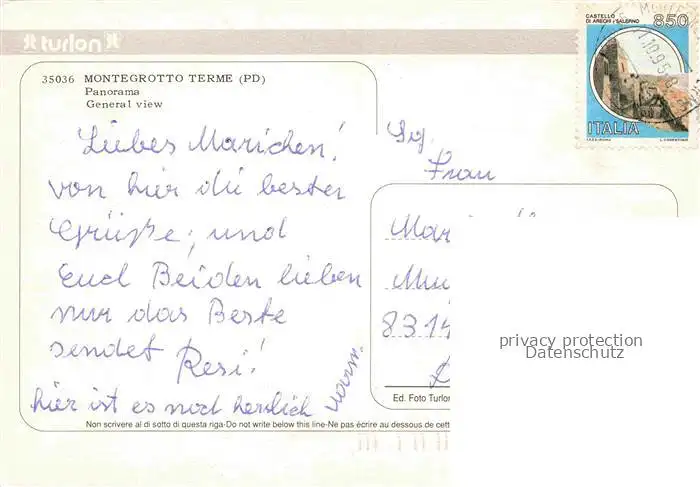 turlon
CASTELLO
DI ARECHI / SALERNO
850
ITALIA
35036 MONTEGROTTO TERME (PD)
Panorama
General view
Liebes Mariechen!
von hier die besten
Grüße, und
Euch Beiden lieben
nur das Beste
sendet Resi!
hier ist es noch herrlich
warm.
Sig.
Frau
Mar
Mu
831
privacy protection
Datenschutz
Ed. Foto Turlon
Non scrivere al di sotto di questa riga-Do not write below this line-Ne pas écrire au dessous de cett